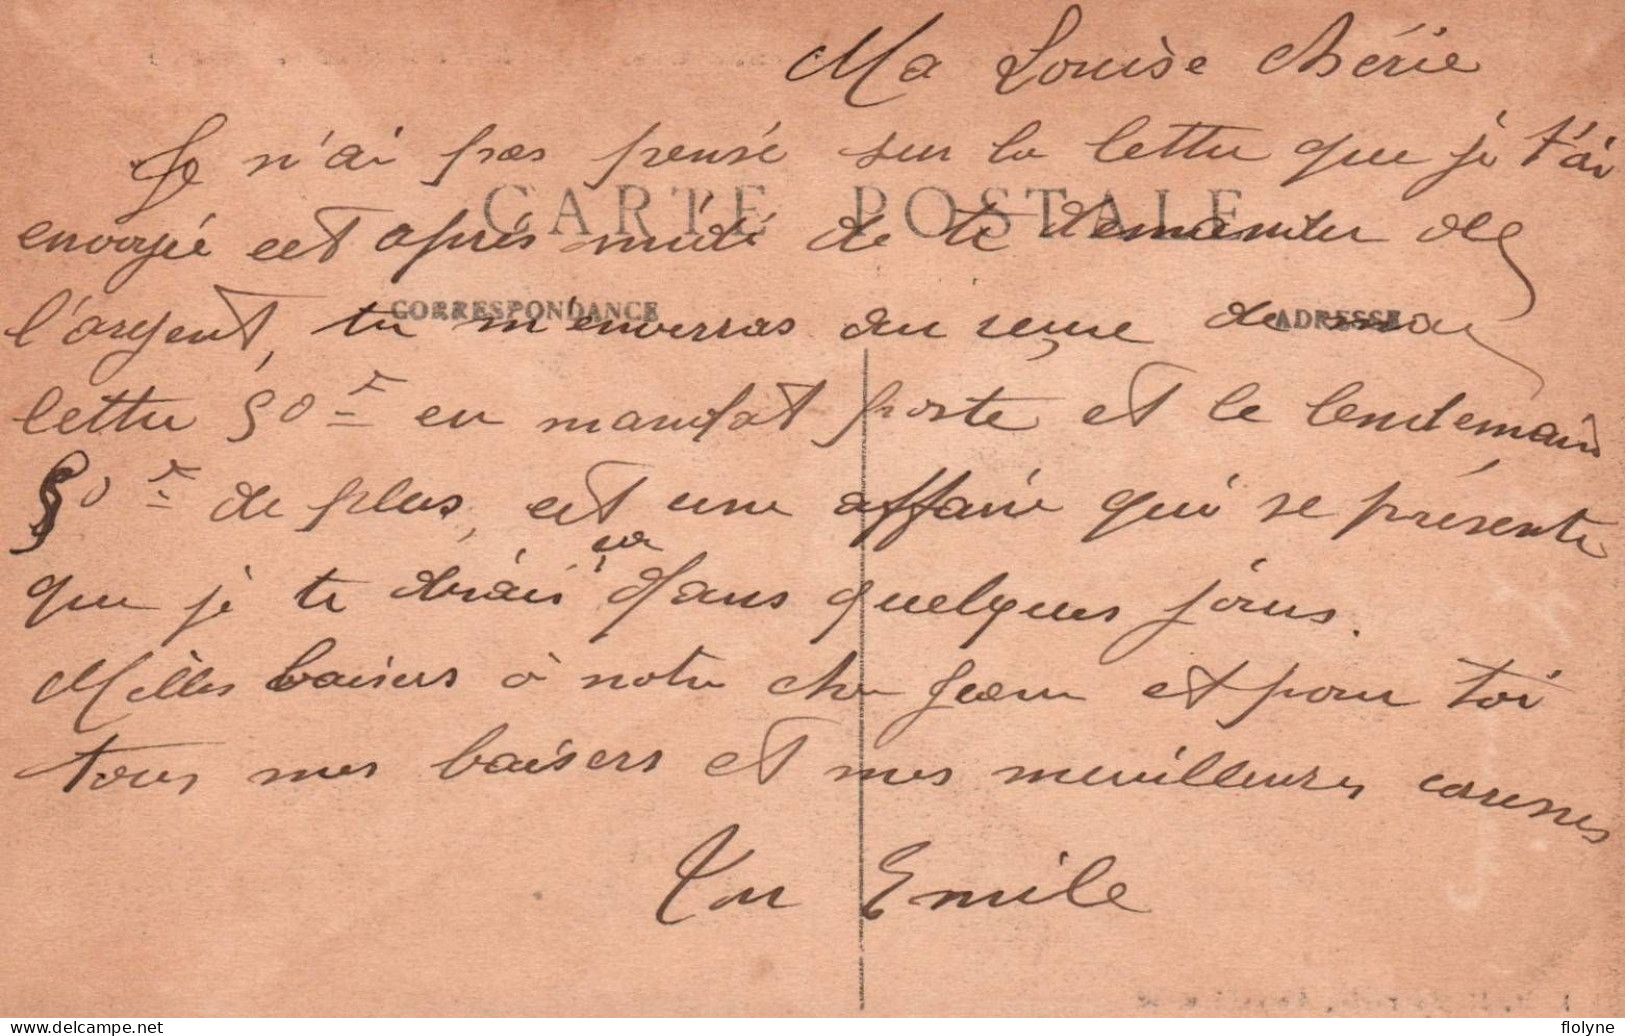 Ma Louise chérie
Je n'ai pas pensé sur la lettre que je t'ai
CARTE POSTALE
envoyée cet après midi de te demander de
CORRESPONDANCE
ADRESSE
l'argent, tu m'enverras au reçue de ma
lettre 50 F en mandat poste et le lendemain
50 F de plus, cet une affaire qui se présente
que je te dirais ça dans quelques jours.
Milles baisers à notre cher Jean et pour toi
tous mes baisers et mes meuilleures caresses
Ton Emile
flolyne